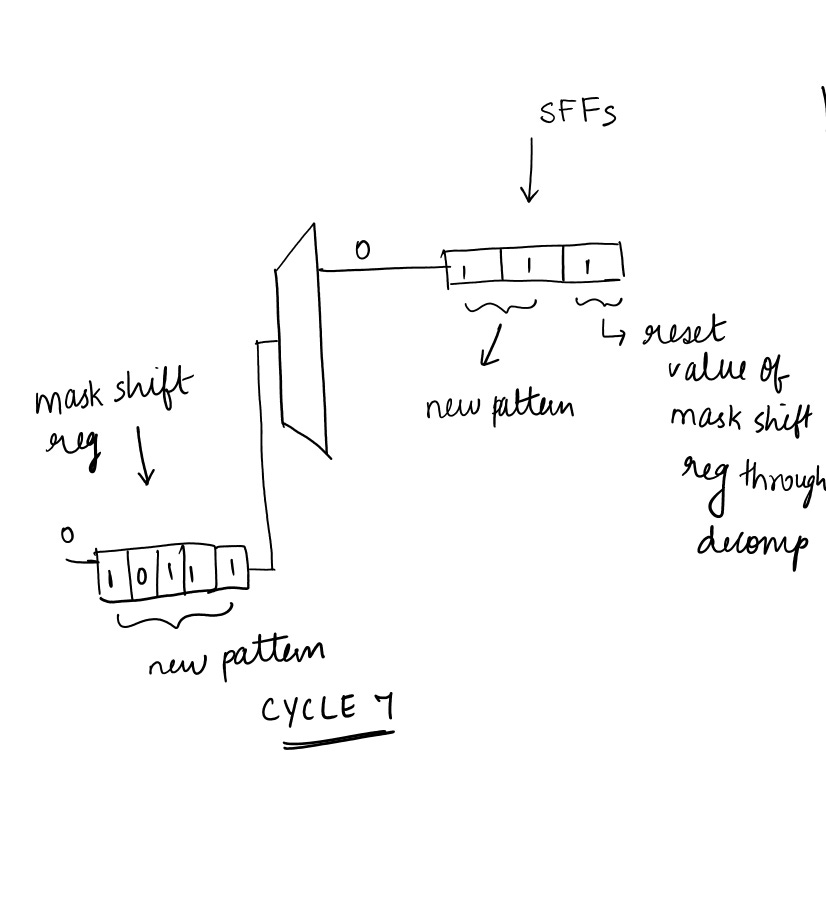 SFFs
0
1 1 1
reset
value of
mask shift
reg through
decomp
new pattern
mask shift
reg
0
1 0 1 1 1
new pattern
CYCLE 7